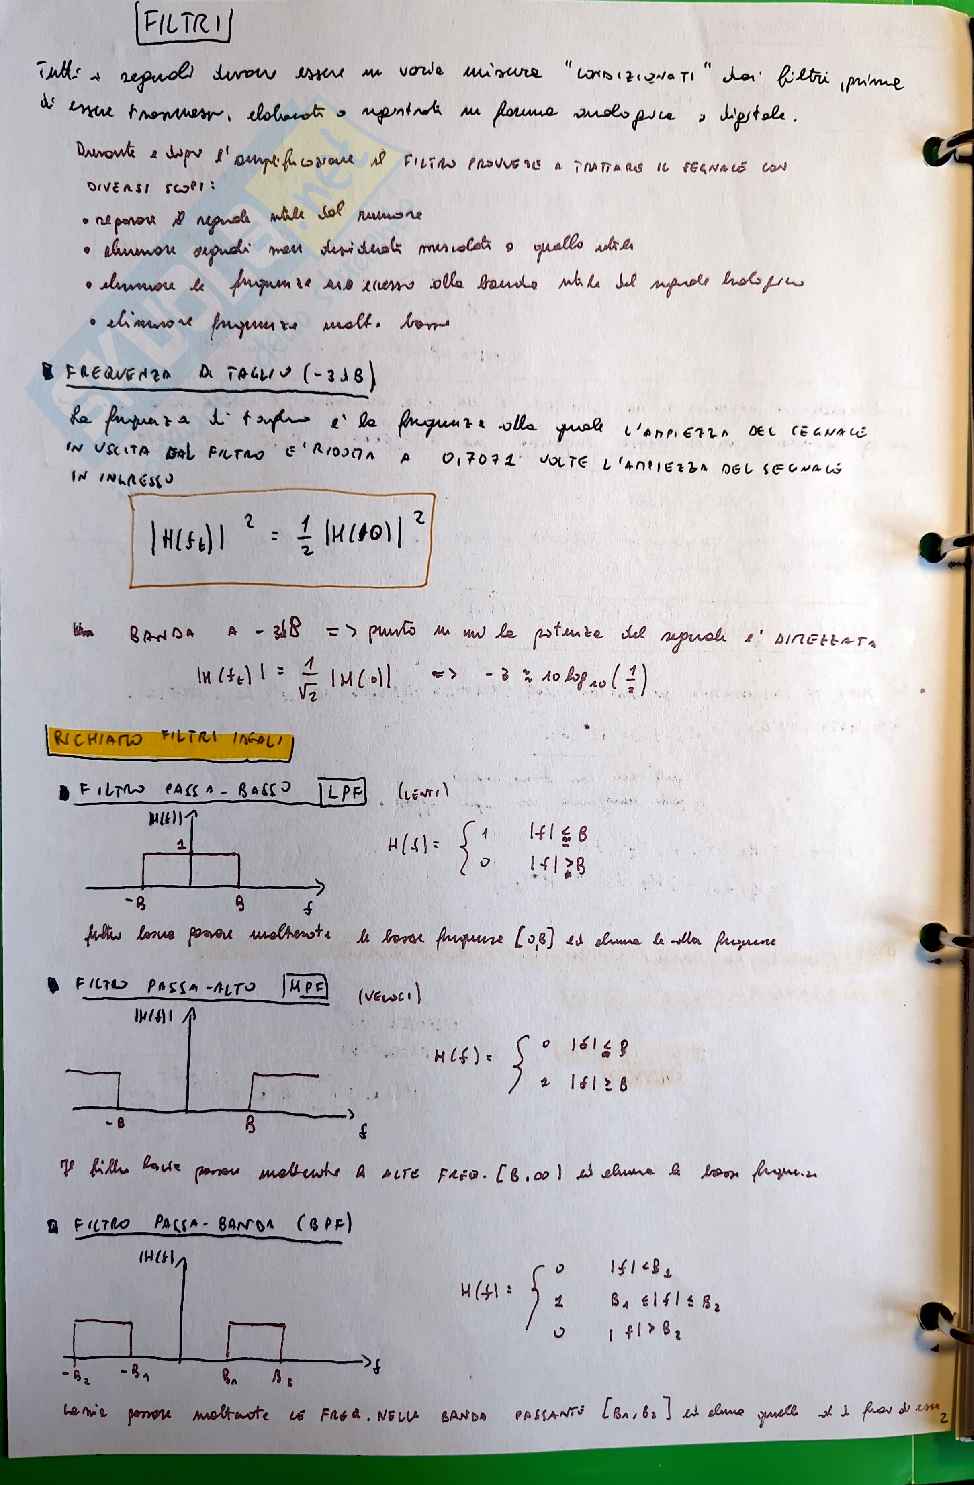 FILTRI
Tutti i segnali devono essere in varia misura "CONDIZIONATI" dai filtri, prima
di essere trasmessi, elaborati o registrati in forma analogica o digitale.
Durante e dopo l'amplificazione il FILTRO PROVVEDE A TRATTARE IL SEGNALE CON
DIVERSI SCOPI:
• separare il segnale utile dal rumore
• eliminare segnali non desiderati mescolati a quello utile
• eliminare le frequenze in eccesso alla banda utile del segnale biologico
• eliminare frequenze molto basse
FREQUENZA DI TAGLIO (-3dB)
La frequenza di taglio è la frequenza alla quale L'AMPIEZZA DEL SEGNALE
IN USCITA DAL FILTRO E' RIDOTTA A 0,7071 VOLTE L'AMPIEZZA DEL SEGNALE
IN INGRESSO
|H(ft)|² = 1/2 |H(f0)|²
BANDA A -3dB => punto in cui la potenza del segnale e' DIMEZZATA
|H(ft)| = 1/√2 |H(0)| => -3 ≈ 10 log10 (1/2)
RICHIAMO FILTRI IDEALI
FILTRO PASSA-BASSO LPF (LENTI)
|H(f)|
1
-B B f
H(f) = { 1 |f| ≤ B
0 |f| ≥ B
filtro lascia passare inalterate le basse frequenze [0,B] ed elimina le alte frequenze
FILTRO PASSA-ALTO HPF (VELOCI)
|H(f)|
-B B f
H(f) = { 0 |f| ≤ B
1 |f| ≥ B
Il filtro lascia passare inalterate le ALTE FREQ. [B,∞) ed elimina le basse frequenze
FILTRO PASSA-BANDA (BPF)
|H(f)|
-B2 -B1 B1 B2 f
H(f) = { 0 |f| < B1
1 B1 ≤ |f| ≤ B2
0 |f| > B2
Lascia passare inalterate LE FREQ. NELLA BANDA PASSANTE [B1,B2] ed elimina quelle al di fuori di essa
2
SKUOLA.net